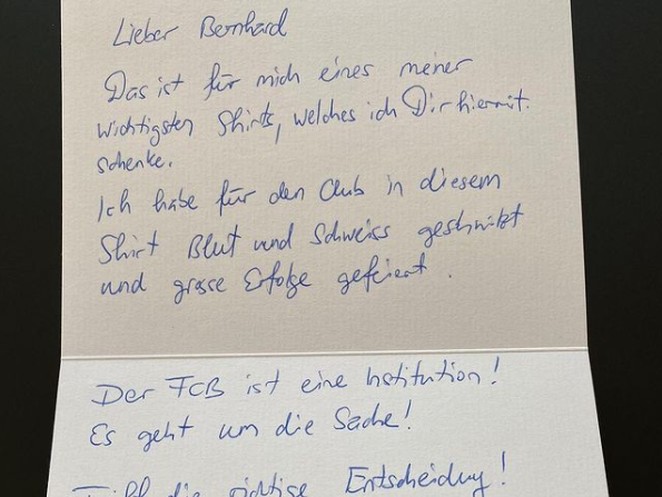 Lieber Bernhard
Das ist für mich eines meiner
wichtigsten Shirts, welches ich Dir hiermit
schenke.
Ich habe für den Club in diesem
Shirt Blut und Schweiss geschwitzt
und grosse Erfolge gefeiert.
Der FCB ist eine Institution!
Es geht um die Sache!
die richtige Entscheidung!